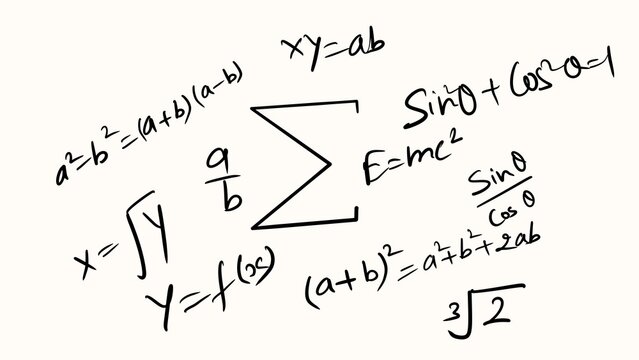 xy=ab
a²-b²=(a+b)(a-b)
Sin²θ+Cos²θ=1
a/b
Σ
E=mc²
Sinθ/Cosθ
x=∫y
y=f(x)
(a+b)²=a²+b²+2ab
∛2